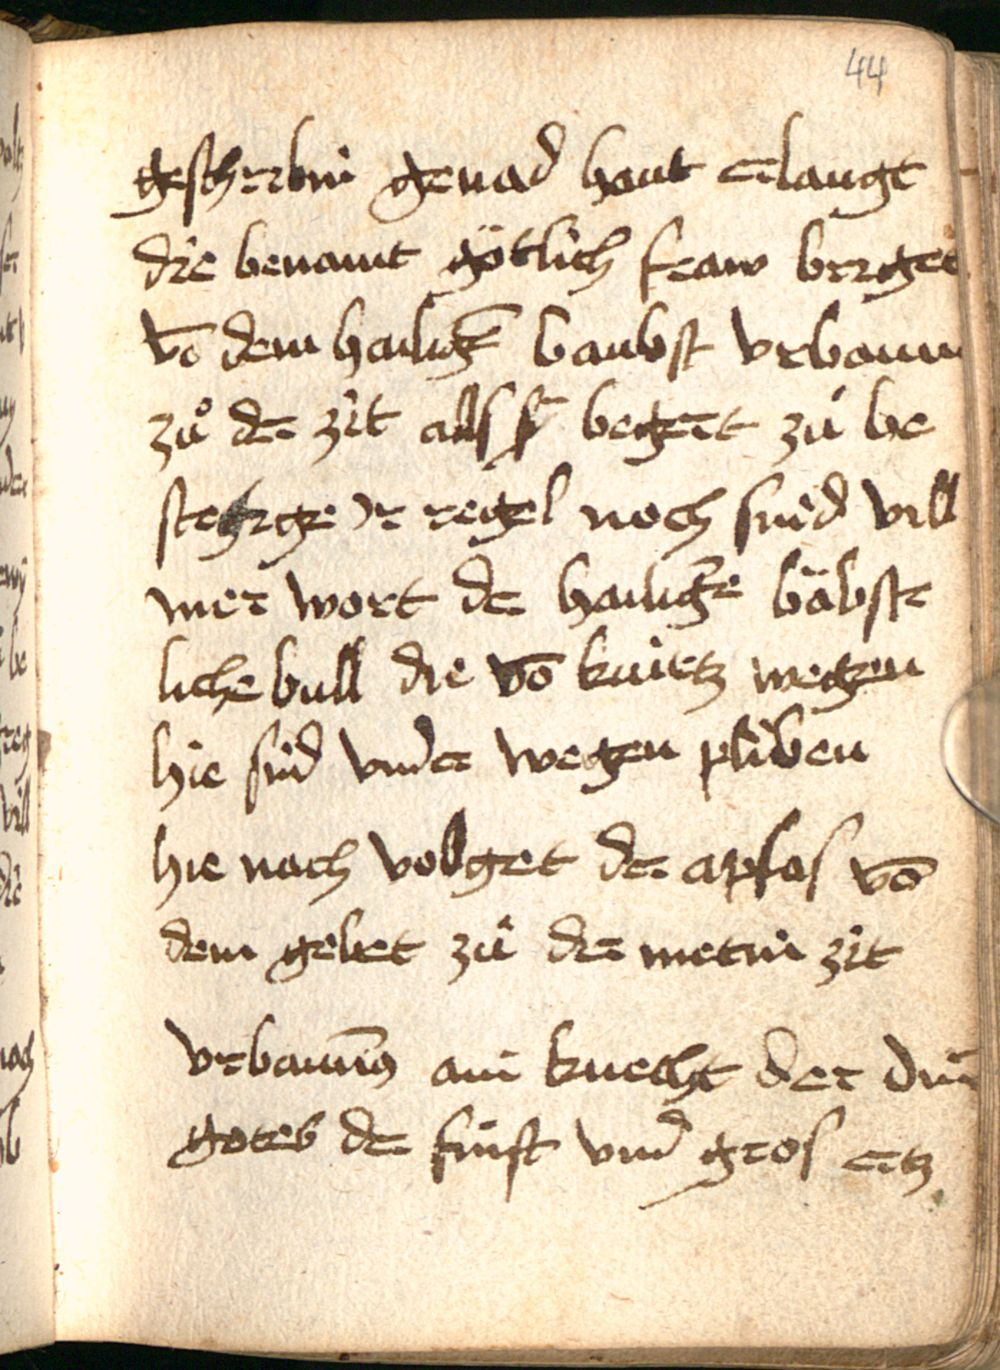 44
geschribni genad haut erlangt
die benamt götlich fraw birget
võ dem hailigẽ baubst vrbanum
zuͦ der zit alls sÿ begert zu be
stetige ir regel noch sind vill
mer wort der hailige bäbste
liche bull die võ kürtz wegen
hie sind vnder wegen pliben
hie nach volget der aplas võ
dem gebet zü der metni zit
vrbanus ain knecht der dien
gotes der finft vnd gros ertz